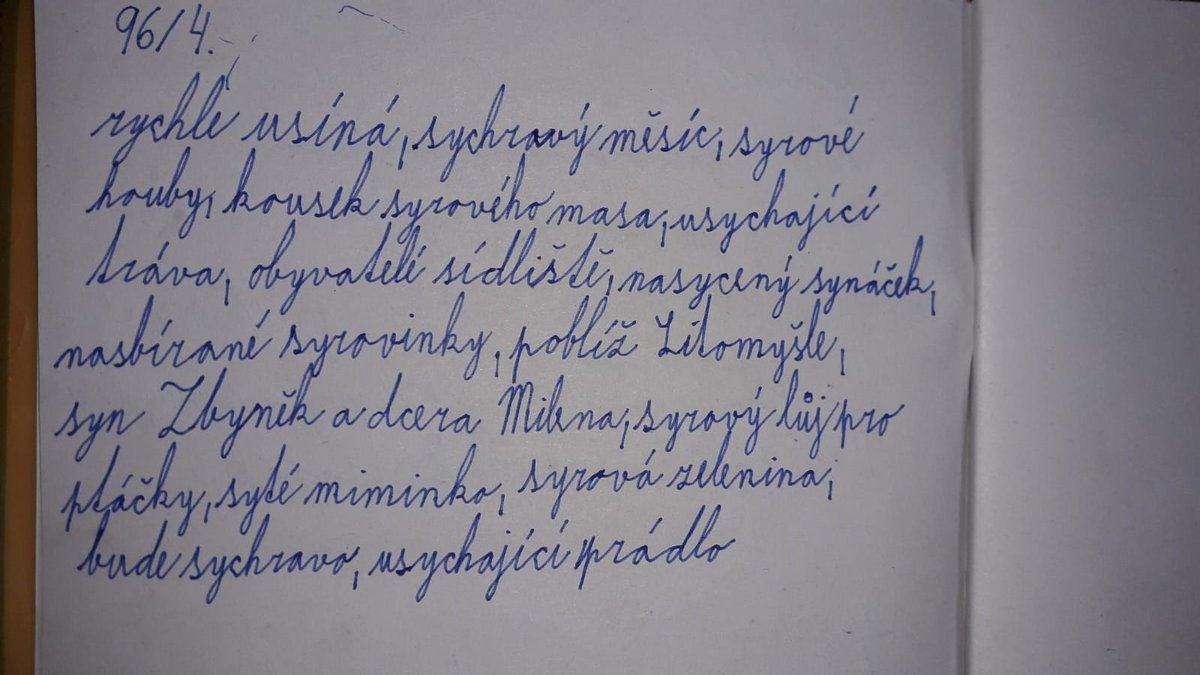 96/4.
rychle usíná, sychravý měsíc, syrové
houby, kousek syrového masa, usychající
tráva, obyvatelé sídliště, nasycený synáček,
nasbírané syrovinky, poblíž Litomyšle,
syn Zbyněk a dcera Milena, syrový lůj pro
ptáčky, syté miminko, syrová zelenina,
bude sychravo, usychající prádlo